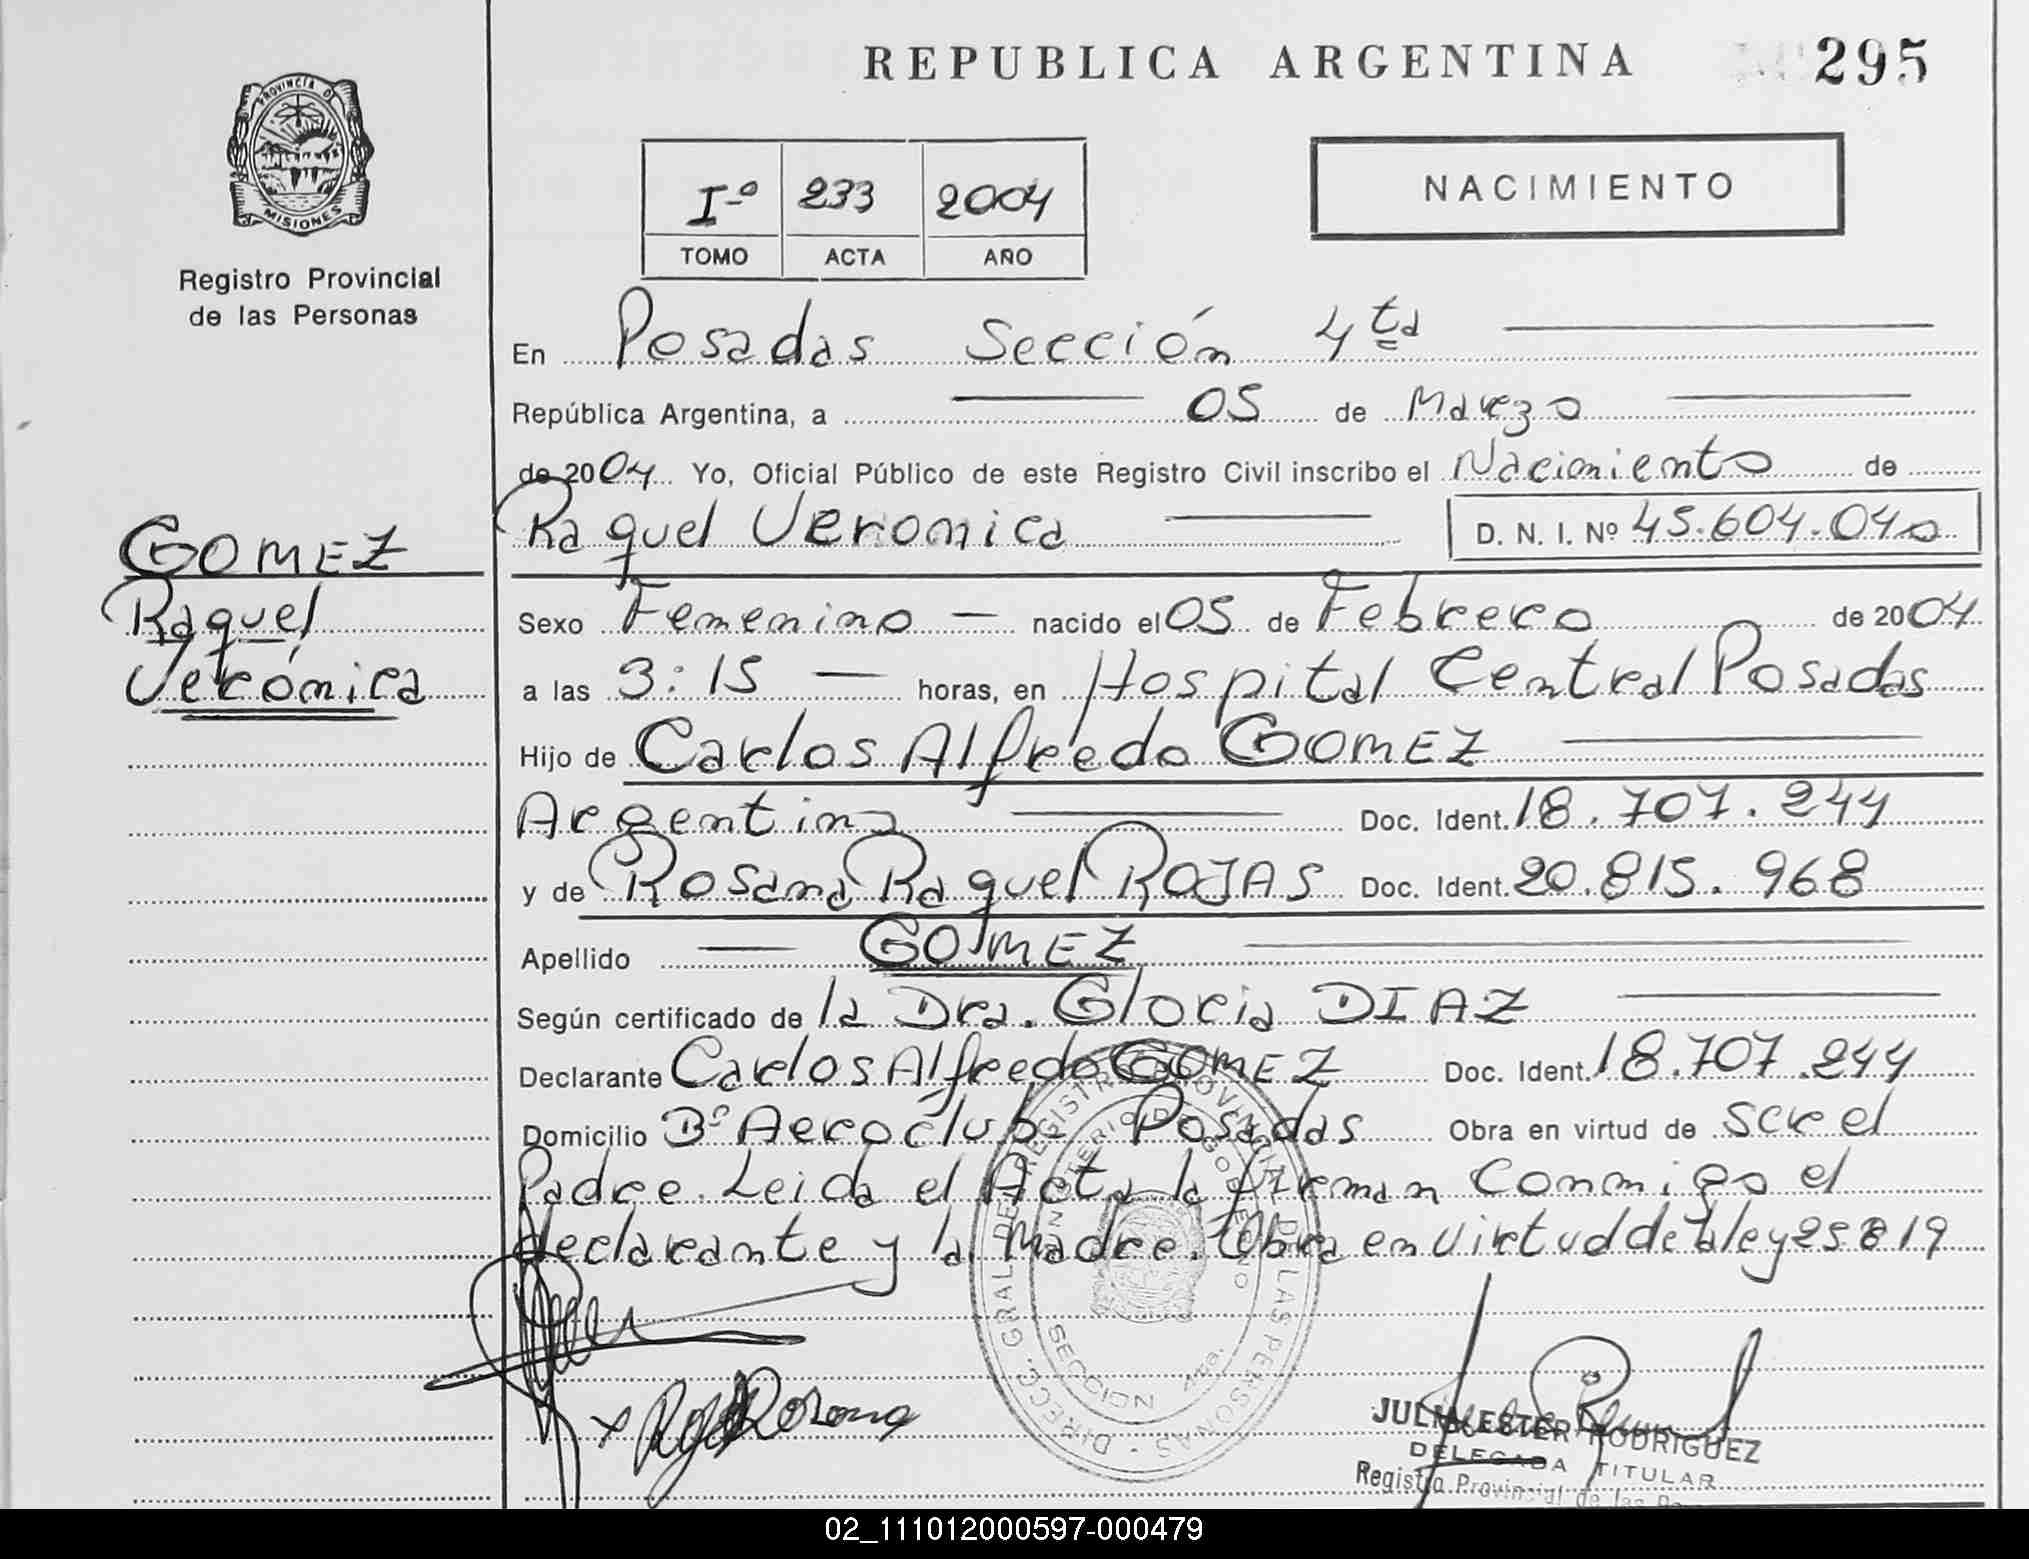 REPUBLICA ARGENTINA
295
PROVINCIA D
MISIONES
Registro Provincial
de las Personas
Iº 233 2004
TOMO ACTA AÑO
NACIMIENTO
En Posadas Sección 4ta
República Argentina, a 05 de Marzo
de 2004 Yo, Oficial Público de este Registro Civil inscribo el Nacimiento de
Raquel Veronica D. N. I. Nº 45.604.040
GOMEZ
Raquel
Verónica
Sexo Femenino — nacido el 05 de Febrero de 2004
a las 3:15 — horas, en Hospital Central Posadas
Hijo de Carlos Alfredo GOMEZ
Argentina Doc. Ident. 18.707.244
y de Rosana Raquel ROJAS Doc. Ident. 20.815.968
Apellido — GOMEZ
Según certificado de la Dra. Gloria DIAZ
Declarante Carlos Alfredo GOMEZ Doc. Ident. 18.707.244
Domicilio Bº Aeroclub Posadas Obra en virtud de ser el
Padre. Leida el Acta la firman Conmigo el
declarante y la Madre. Obra en Virtud de la ley 25819
DIRECC. GRAL. DE REGISTRO PROVINCIAL DE LAS PERSONAS
MINISTERIO DE GOBIERNO
SECCION 4ta.
x Rojas Rosana
JULIA ESTER RODRIGUEZ
DELEGADA TITULAR
Registro Provincial de las
02_111012000597-000479